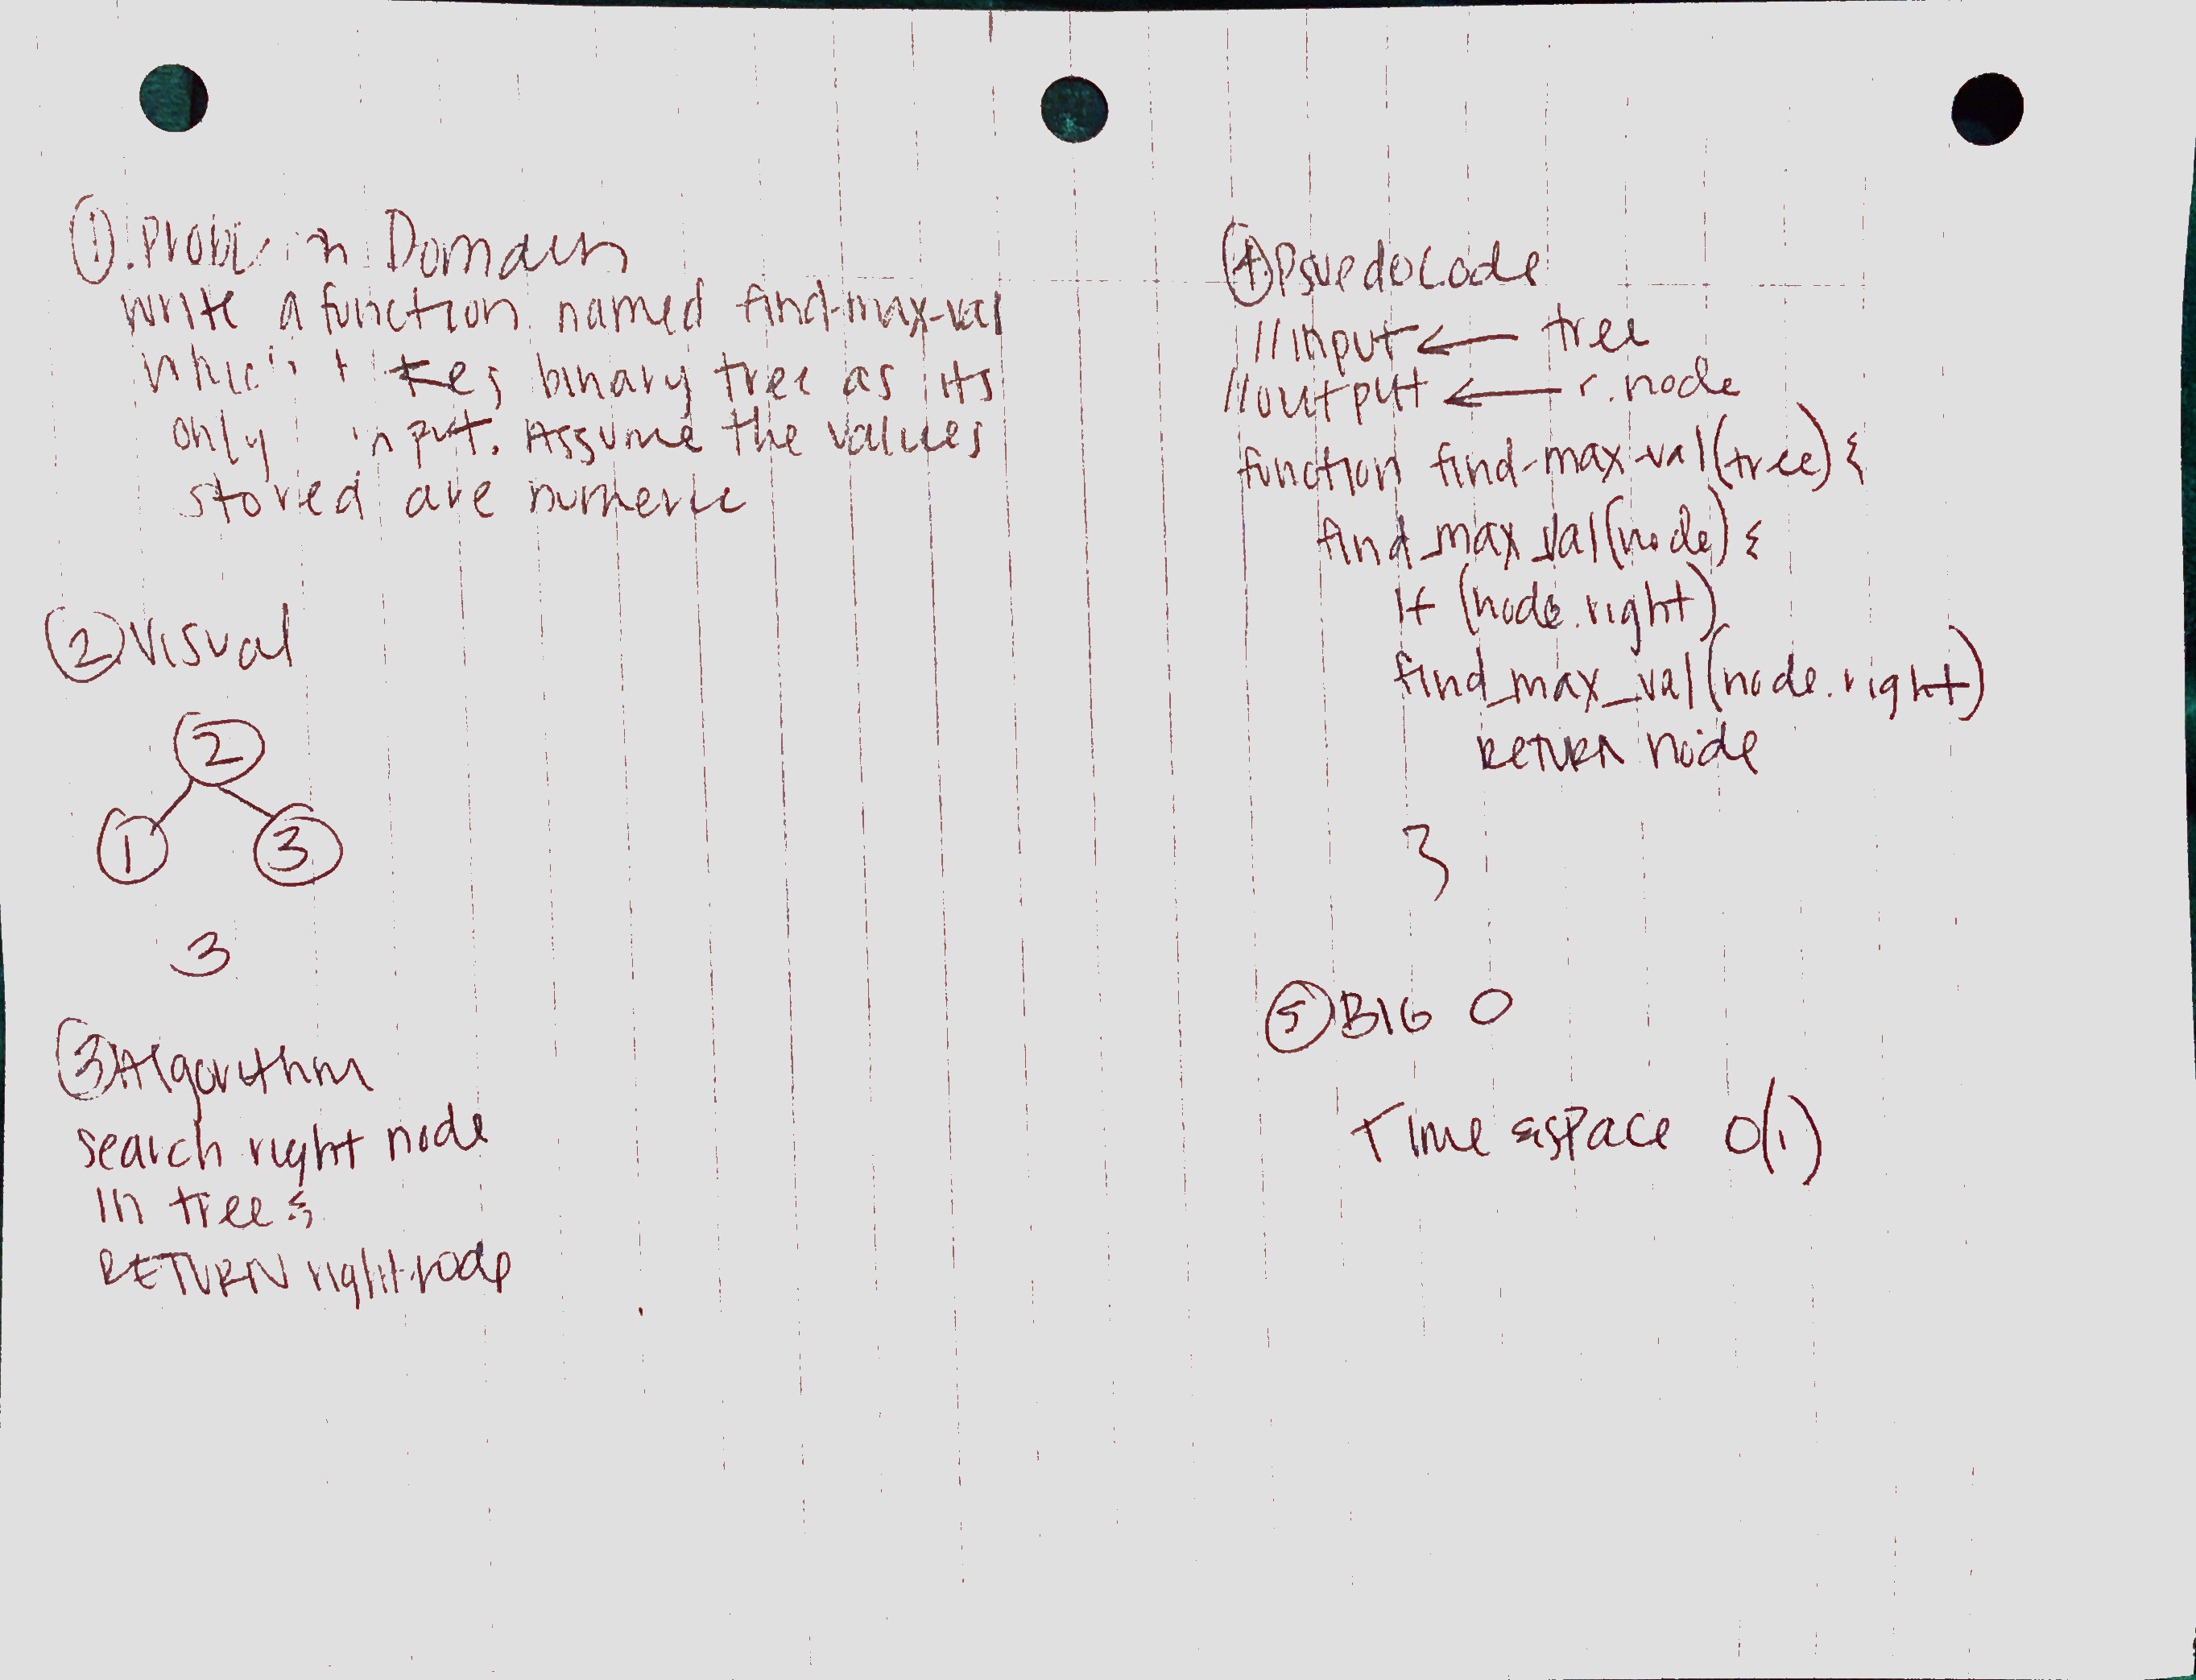 ① Problem Domain
write a function named find-max-val
which takes binary tree as its
only input. Assume the values
stored are numeric
② Visual
2
1 3
3
③ Algorithm
search right node
in tree &
RETURN right node
④ Psuedocode
//input ← tree
//output ← r.node
function find-max-val(tree) {
find_max_val(node) {
If (node.right)
find_max_val(node.right)
RETURN node
}
⑤ BIG O
Time & space O(1)